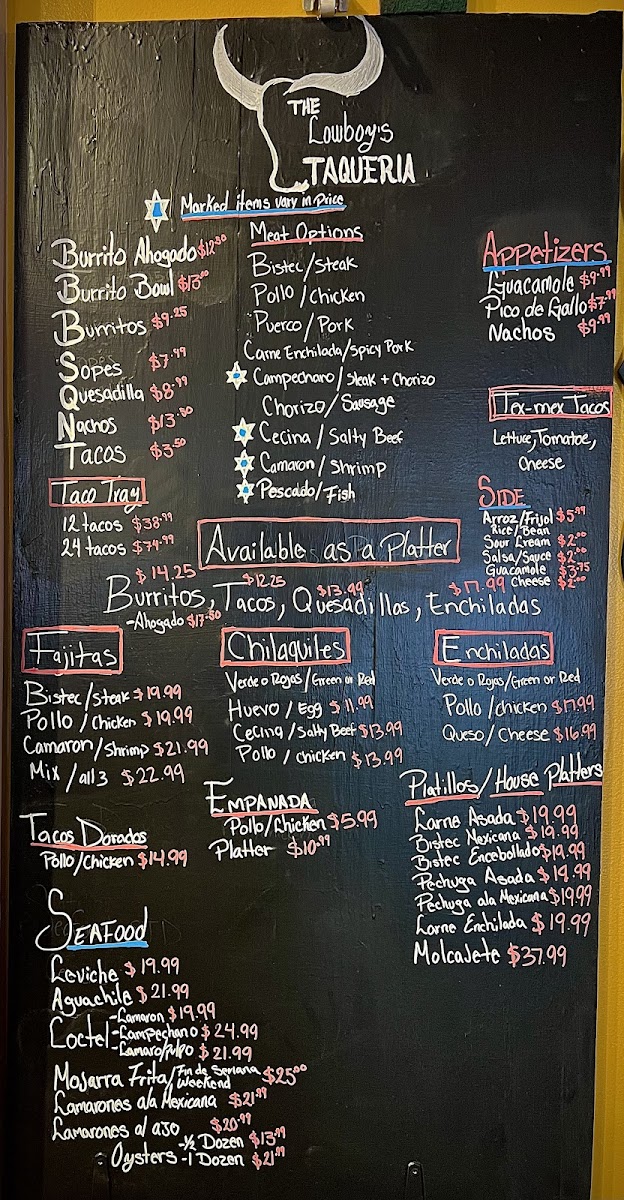 THE
Cowboy's
TAQUERIA
Marked items vary in price
Burrito Ahogado $12.50
Burrito Bowl
Burritos $9.25
Sopes $7.99
Quesadilla $8.99
Nachos $13.50
Tacos $3.50
Taco Tray
12 tacos $38.99
24 tacos $74.99
Meat Options
Bistec/Steak
Pollo/Chicken
Puerco/Pork
Carne Enchilada/Spicy Pork
Campechano/Steak + Chorizo
Chorizo/Sausage
Cecina/Salty Beef
Camaron/Shrimp
Pescado/Fish
Appetizers
Guacamole $9.99
Pico de Gallo $7.99
Nachos $9.99
Tex-mex Tacos
Lettuce, Tomatoe,
Cheese
SIDE
Arroz/Frijol $5.99
Rice/Bean
Sour Cream $2.00
Salsa/Sauce $2.00
Guacamole $3.75
Cheese $2.00
Available as a Platter
$14.25 $12.25 $13.99 $17.99
Burritos, Tacos, Quesadillas, Enchiladas
-Ahogado $17.50
Fajitas
Bistec/Steak $19.99
Pollo/Chicken $19.99
Camaron/Shrimp $21.99
Mix/all 3 $22.99
Chilaquiles
Verde o Rojas/Green or Red
Huevo/Egg $11.99
Cecina/Salty Beef $13.99
Pollo/chicken $13.99
Enchiladas
Verde o Rojas/Green or Red
Pollo/chicken $17.99
Queso/Cheese $16.99
EMPANADA
Pollo/Chicken $5.99
Platter $10.99
Platillos/House Platters
Carne Asada $19.99
Bistec Mexicana $19.99
Bistec Encebollado $19.99
Pechuga Asada $19.99
Pechuga ala Mexicana $19.99
Carne Enchilada $19.99
Molcajete $37.99
Tacos Dorados
Pollo/Chicken $14.99
SEAFOOD
Ceviche $19.99
Aguachile $21.99
Coctel -Camaron $19.99
-Campechano $24.99
-Camaro/Pulpo $21.99
Mojarra Frita/Fin de Semana Weekend $25.00
Camarones ala Mexicana $21.99
Camarones al ajo $20.99
Oysters -1/2 Dozen $13.99
-1 Dozen $21.99